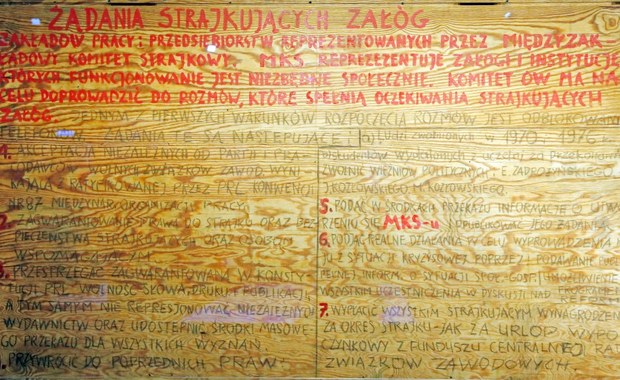 ŻĄDANIA STRAJKUJĄCYCH ZAŁÓG
ZAKŁADÓW PRACY I PRZEDSIĘBIORSTW REPREZENTOWANYCH PRZEZ MIĘDZYZAK
ŁADOWY KOMITET STRAJKOWY. MKS REPREZENTUJE ZAŁOGI I INSTYTUCJE
KTÓRYCH FUNKCJONOWANIE JEST NIEZBĘDNE SPOŁECZNIE. KOMITET ÓW MA NA
CELU DOPROWADZIĆ DO ROZMÓW, KTÓRE SPEŁNIĄ OCZEKIWANIA STRAJKUJĄCYCH
ZAŁÓG. JEDNYM Z PIERWSZYCH WARUNKÓW ROZPOCZĘCIA ROZMÓW JEST ODBLOKOWANIE
TELEFONÓW. ŻĄDANIA TE SĄ NASTĘPUJĄCE:
1. AKCEPTACJA NIEZALEŻNYCH OD PARTII I PRA-
CODAWCÓW WOLNYCH ZWIĄZKÓW ZAWOD. WYNI
KAJĄCA Z RATYFIKOWANEJ PRZEZ PRL KONWENCJI
NR 87 MIĘDZYNAR. ORGANIZACJI PRACY.
2. ZAGWARANTOWANIE PRAWA DO STRAJKU ORAZ BEZ
PIECZEŃSTWA STRAJKUJĄCYM ORAZ OSOBOM
WSPOMAGAJĄCYM
3. PRZESTRZEGAĆ ZAGWARANTOWANĄ W KONSTY
TUCJI PRL WOLNOŚĆ SŁOWA, DRUKU I PUBLIKACJI
A TYM SAMYM NIE REPRESJONOWAĆ NIEZALEŻNYCH
WYDAWNICTW ORAZ UDOSTĘPNIĆ ŚRODKI MASOWE
GO PRZEKAZU DLA WSZYSTKICH WYZNAŃ.
PRZYWRÓCIĆ DO POPRZEDNICH PRAW
a) LUDZI zwolnionych 1970, 1976
studentów wydalonych z uczelni za przekonania
ZWOLNIĆ WIĘŹNIÓW POLITYCZNYCH E. ZADROŻYŃSKIEGO
J. KOZŁOWSKIEGO M. KOZŁOWSKIEGO.
5. PODAĆ W ŚRODKACH PRZEKAZU INFORMACJE O UTWO
RZENIU SIĘ MKS-u I OPUBLIKOWAĆ JEGO ŻĄDANIA
6. PODJĄĆ REALNE DZIAŁANIA W CELU WYPROWADZENIA
JU Z SYTUACJI KRYZYSOWEJ POPRZEZ: PODAWANIE
PEŁNEJ INFORM. O SYTUACJI SPOŁ-GOSP. UMOŻLIWIENIE
WSZYSTKIM UCZESTNICZENIA W DYSKUSJI NAD
7. WYPŁACIĆ WSZYSTKIM STRAJKUJĄCYM WYNAGRODZEN
ZA OKRES STRAJKU-JAK ZA URLOP WYPO
CZYNKOWY Z FUNDUSZU CENTRALNEJ RA
ZWIĄZKÓW ZAWODOWYCH.